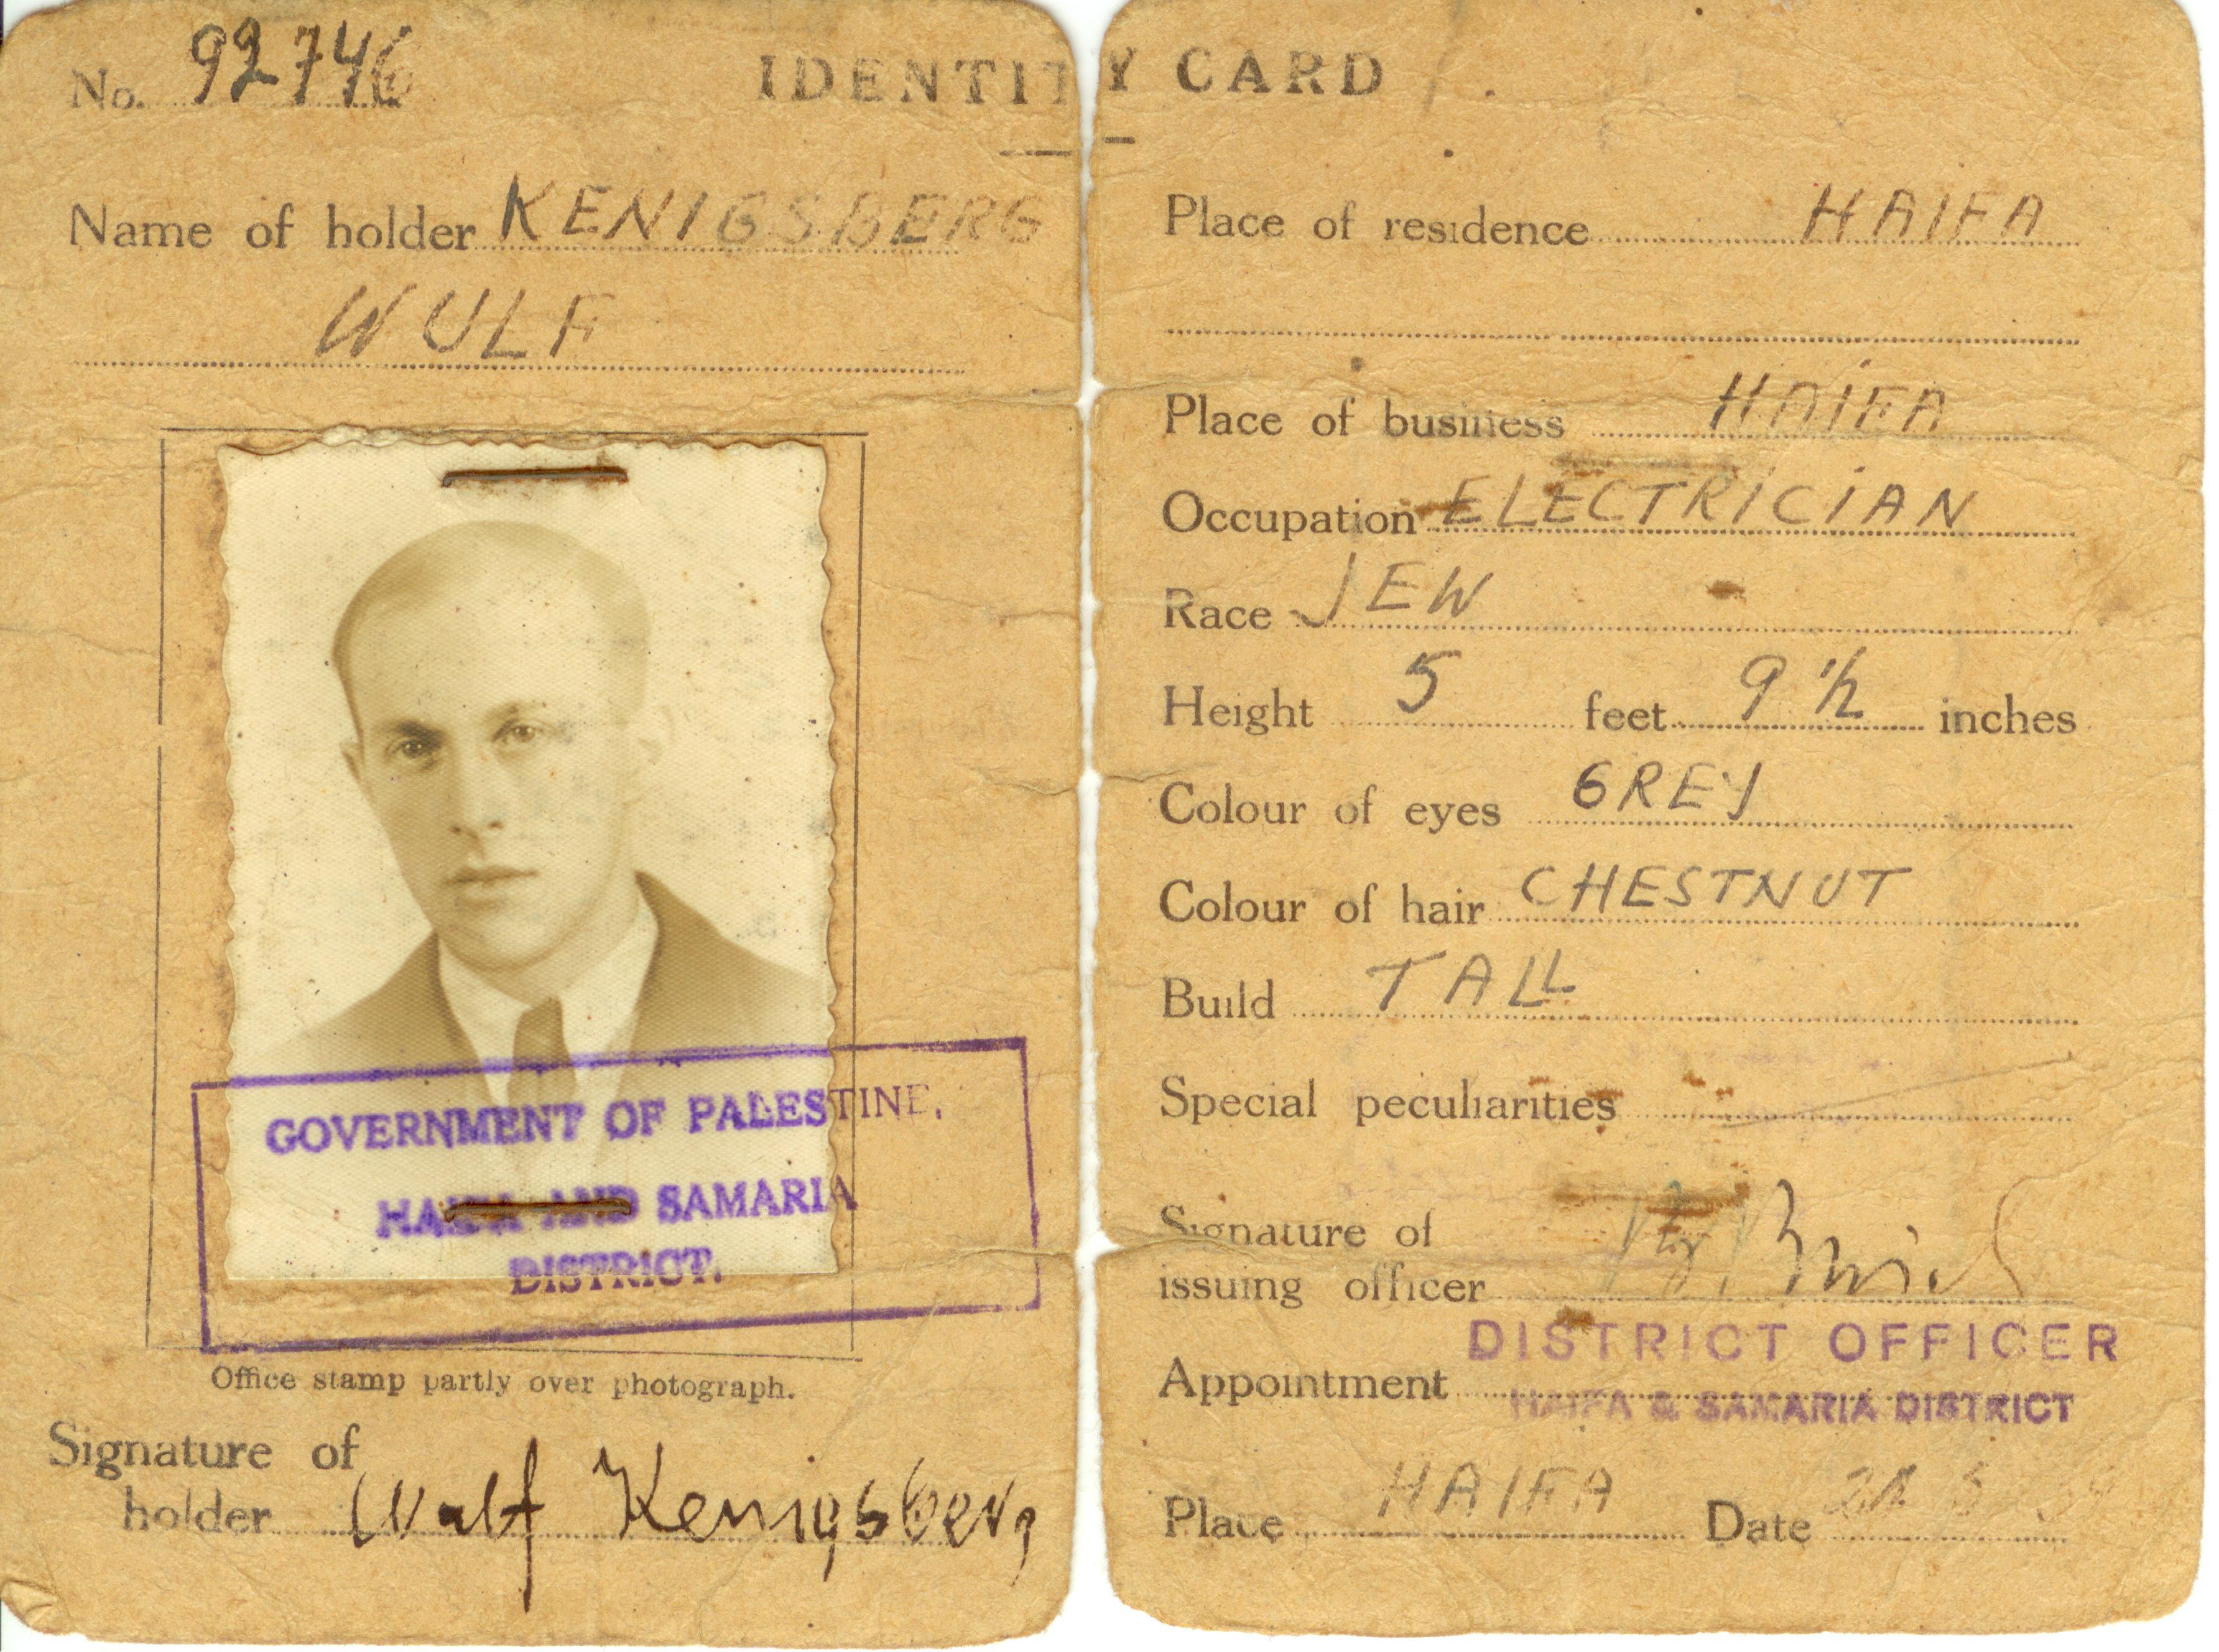 No. 92746
IDENTITY CARD
Name of holder KENIGSBERG
WULF
GOVERNMENT OF PALESTINE,
HAIFA AND SAMARIA
DISTRICT.
Office stamp partly over photograph.
Signature of
holder Wulf Kenigsberg
Place of residence HAIFA
Place of business HAIFA
Occupation ELECTRICIAN
Race JEW
Height 5 feet 9 1/2 inches
Colour of eyes GREY
Colour of hair CHESTNUT
Build TALL
Special peculiarities
Signature of
issuing officer
DISTRICT OFFICER
Appointment
HAIFA & SAMARIA DISTRICT
Place HAIFA Date